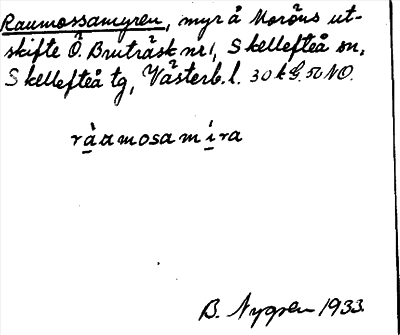 Raumossamyren, myr å Moröns ut-
skifte Ö. Bruträsk nr 1, Skellefteå sn,
Skellefteå tg, Västerb. l. 30 k G. 56 NO.
ràamosamira
B. Nygren 1933.